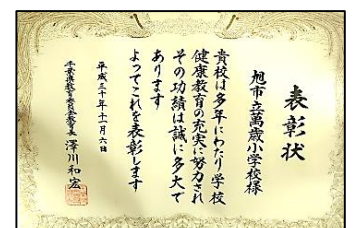 表彰状
旭市立萬歳小学校様
貴校は多年にわたり学校
健康教育の充実に努力され
その功績は誠に多大で
あります
よってこれを表彰します
平成三十年十一月六日
千葉県教育委員会教育長 澤川和宏